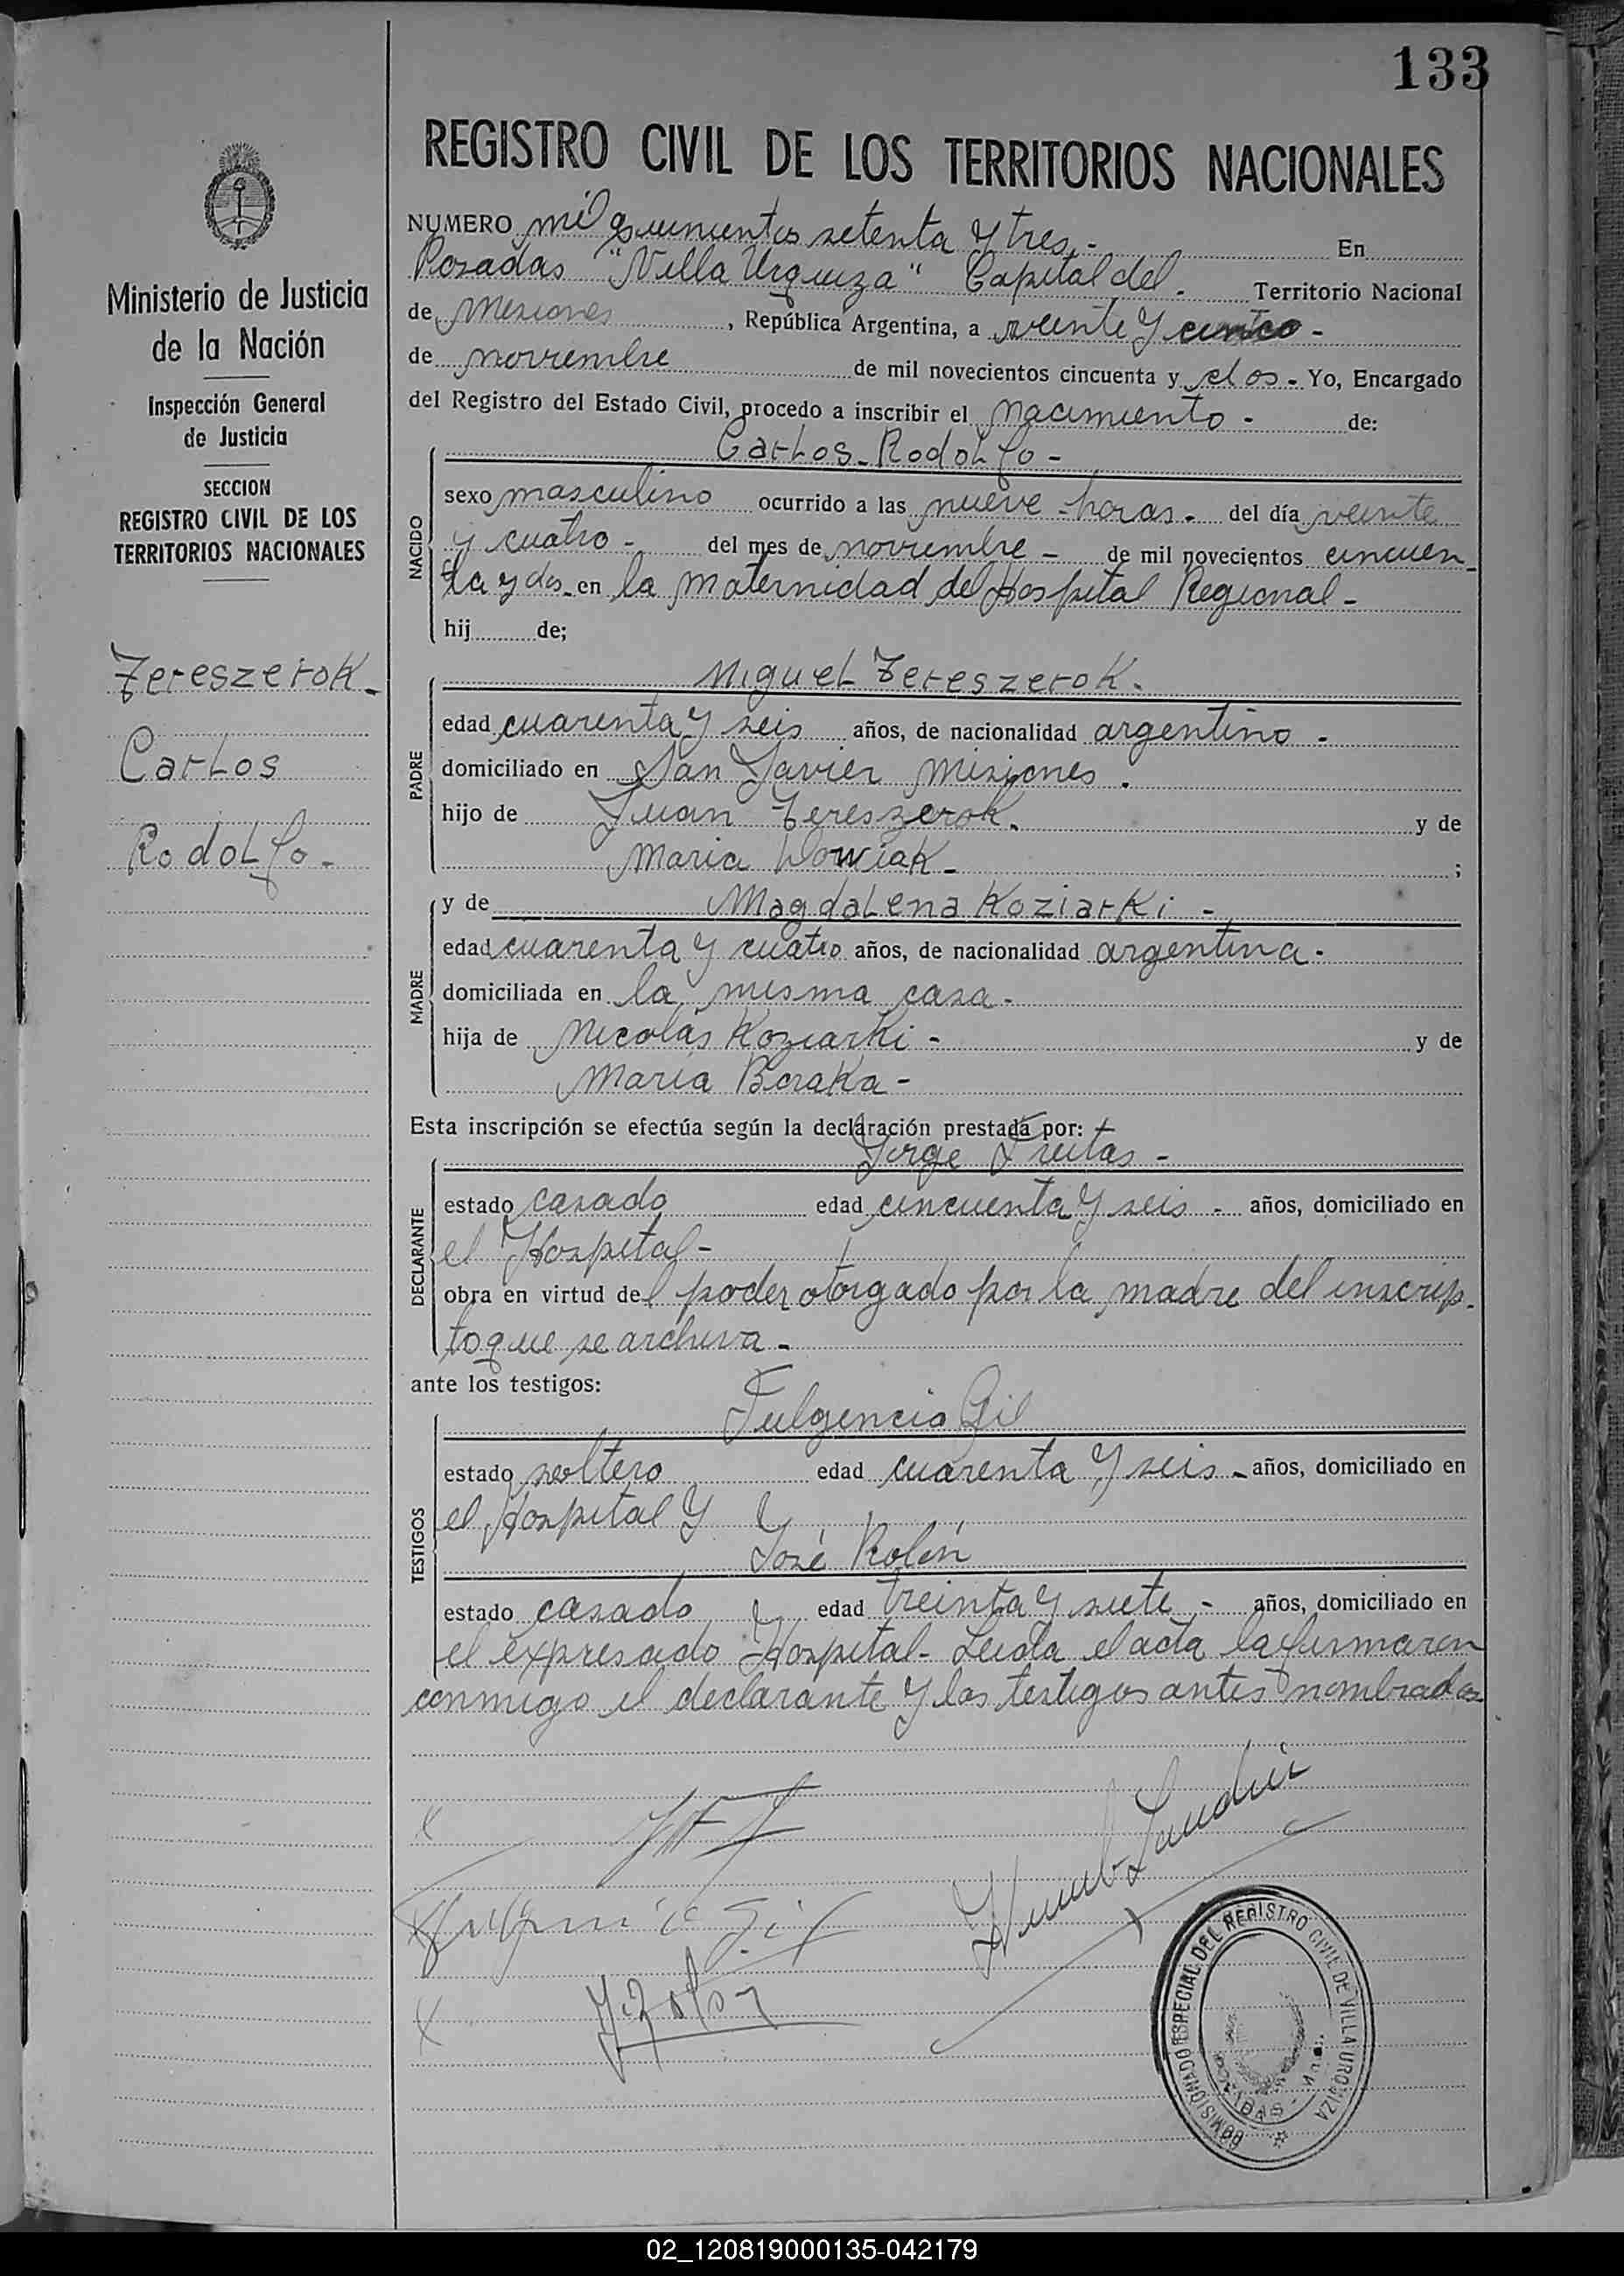 133
REGISTRO CIVIL DE LOS TERRITORIOS NACIONALES
Ministerio de Justicia
de la Nación
Inspección General
de Justicia
SECCION
REGISTRO CIVIL DE LOS
TERRITORIOS NACIONALES
Tereszerok.
Carlos
Rodolfo.
NUMERO mil quinientos setenta y tres.- En
Posadas "Villa Urquiza" Capital del. Territorio Nacional
de Misiones, República Argentina, a veinte y cinco -
de noviembre de mil novecientos cincuenta y dos - Yo, Encargado
del Registro del Estado Civil, procedo a inscribir el nacimiento - de:
Carlos Rodolfo -
NACIDO
sexo masculino ocurrido a las nueve horas - del día veinte
y cuatro - del mes de noviembre - de mil novecientos cincuen
ta y dos en la maternidad del Hospital Regional -
hij de;
PADRE
Miguel Tereszerok.
edad cuarenta y seis años, de nacionalidad argentino -
domiciliado en San Javier Misiones.
hijo de Juan Tereszerok. y de
Maria -;
MADRE
y de Magdalena Koziarki -
edad cuarenta y cuatro años, de nacionalidad argentina -
domiciliada en la misma casa -
hija de Nicolás Koziarki - y de
María Boraka -
Esta inscripción se efectúa según la declaración prestada por:
DECLARANTE
Jorge Freitas -
estado casado edad cincuenta y seis - años, domiciliado en
el Hospital -
obra en virtud del poder otorgado por la madre del inscrip-
to que se archiva -
ante los testigos:
TESTIGOS
Fulgencio Gil
estado soltero edad cuarenta y seis - años, domiciliado en
el Hospital y
José Rolón
estado casado y edad treinta y siete - años, domiciliado en
el expresado Hospital - Leída el acta la firmaron
conmigo el declarante y los testigos antes nombrados
COMISIONADO ESPECIAL DEL REGISTRO CIVIL DE VILLA URQUIZA
02_120819000135-042179